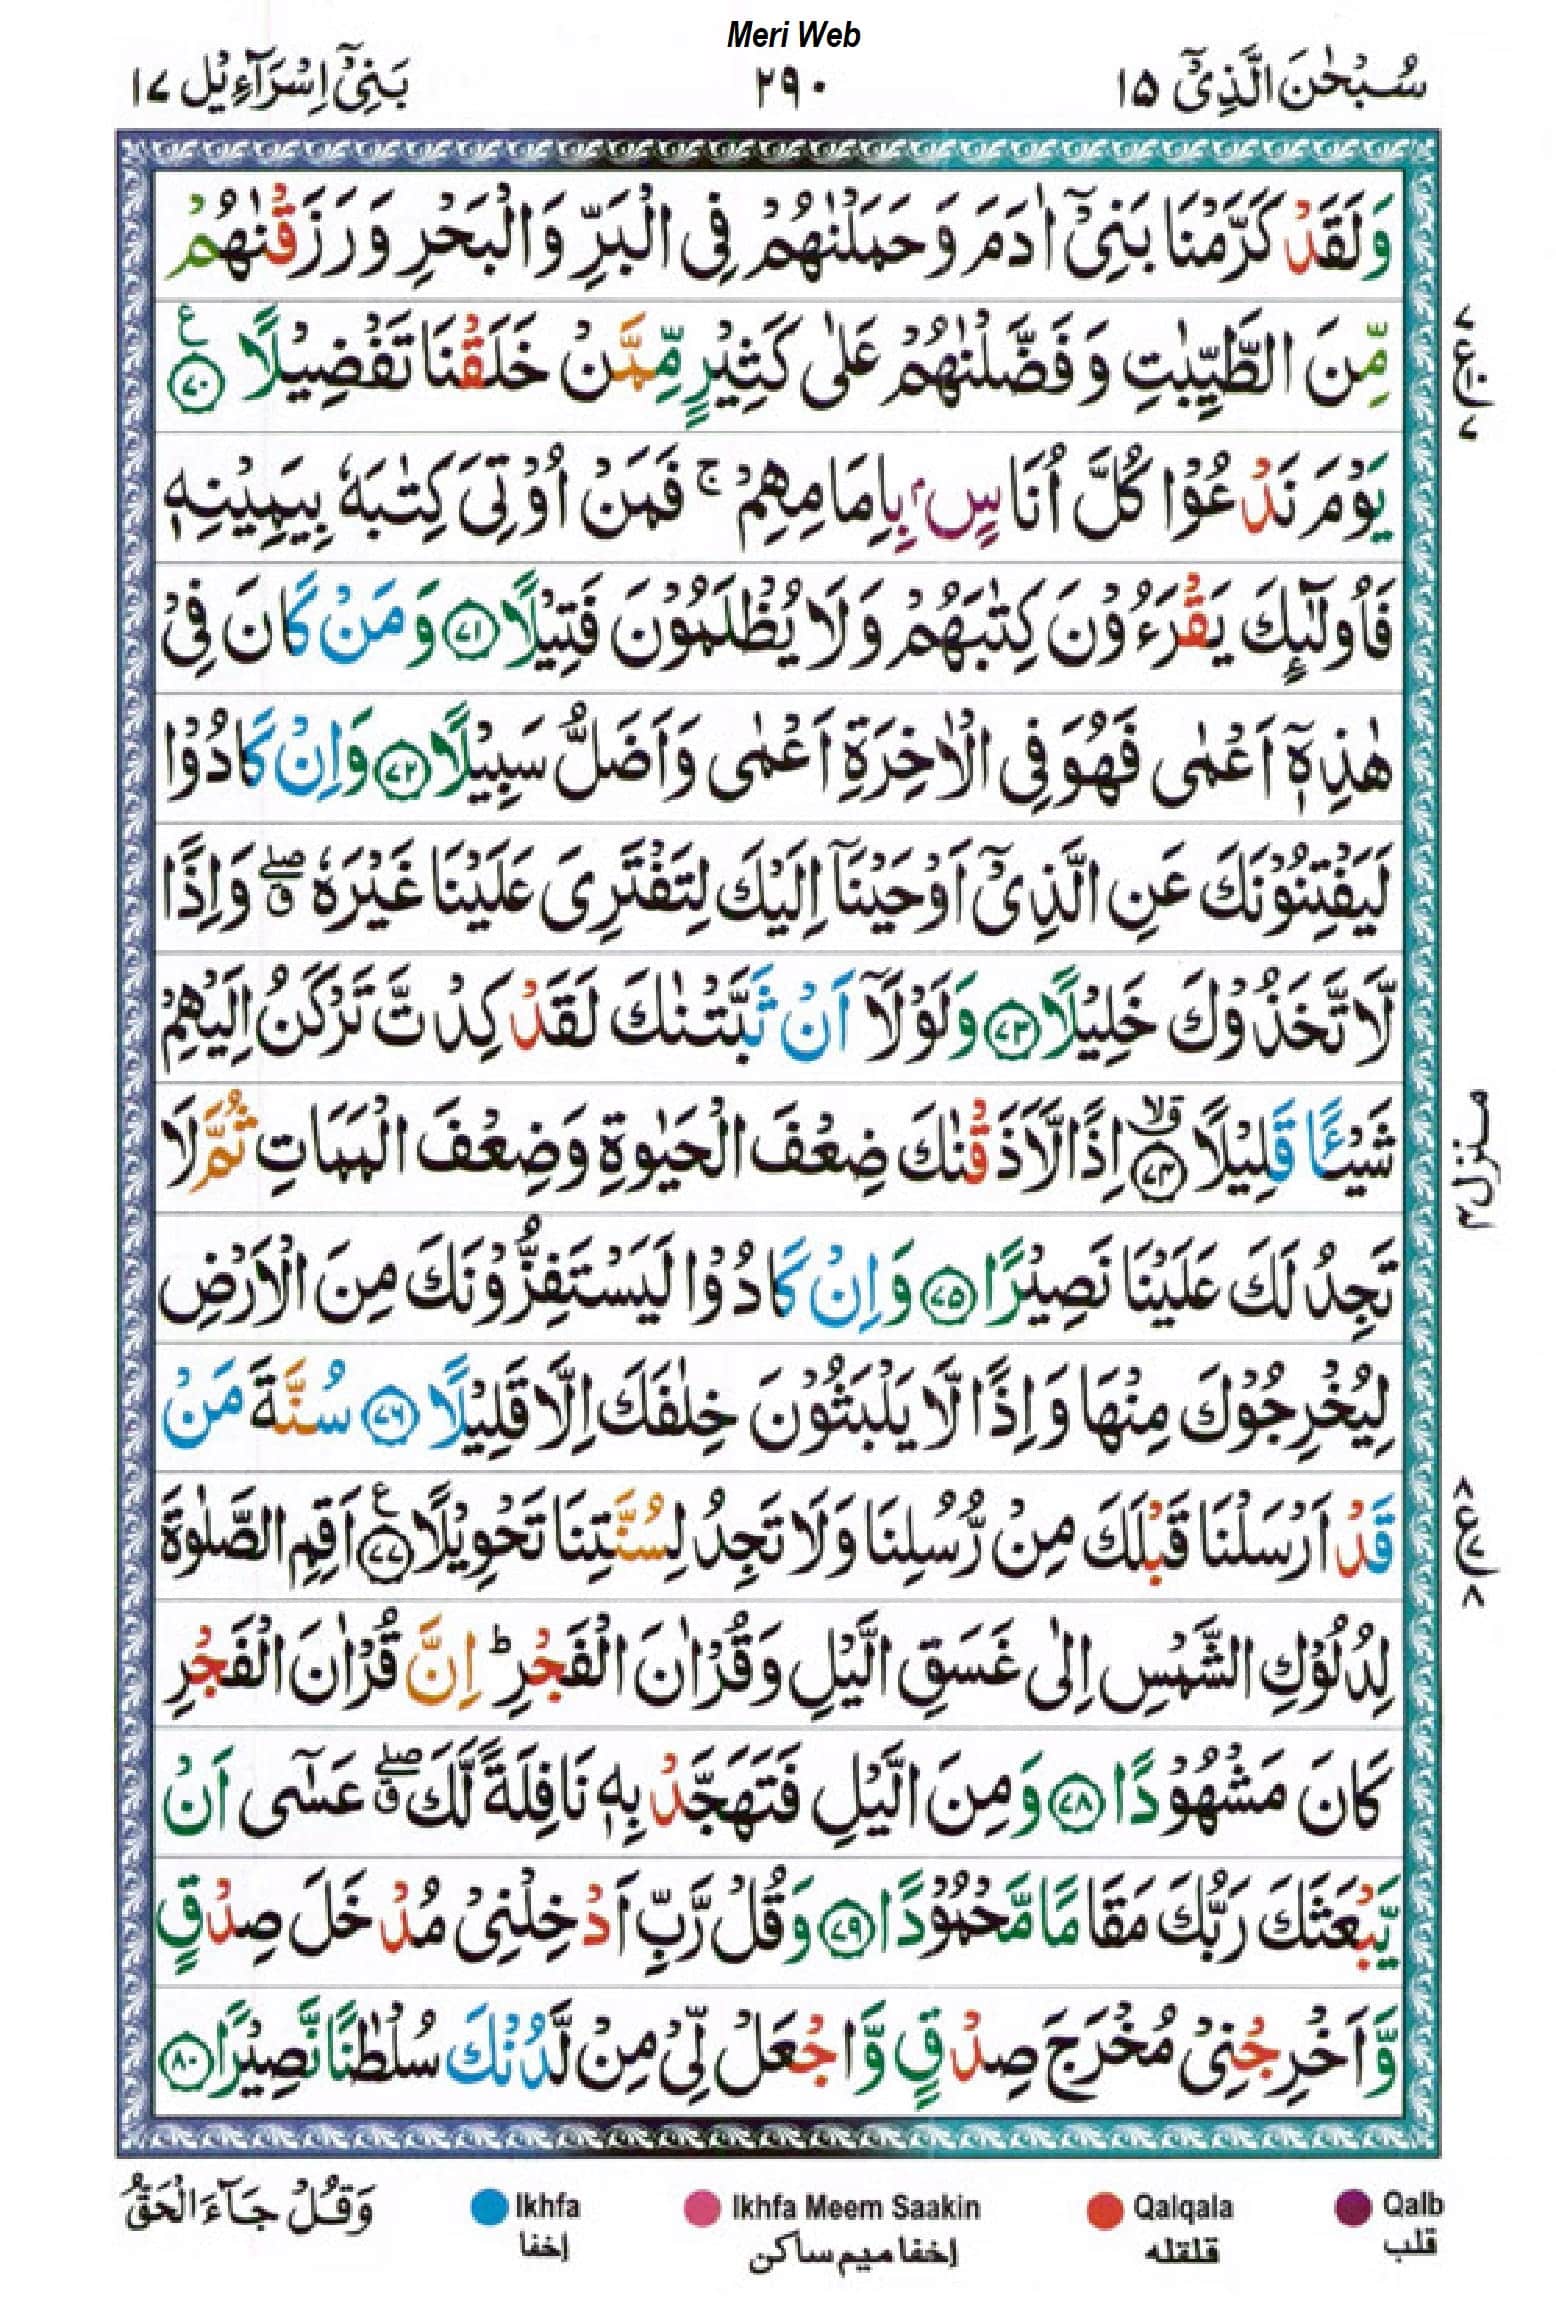 Meri Web
سُبْحٰنَ الَّذِیْۤ ۱۵
۲۹۰
بَنِیْۤ اِسْرَآءِیْل ۱۷
وَلَقَدْ كَرَّمْنَا بَنِیْۤ اٰدَمَ وَحَمَلْنٰهُمْ فِی الْبَرِّ وَالْبَحْرِ وَرَزَقْنٰهُمْ
مِّنَ الطَّیِّبٰتِ وَفَضَّلْنٰهُمْ عَلٰى كَثِیْرٍ مِّمَّنْ خَلَقْنَا تَفْضِیْلًا ۧ ﴿۷۰﴾
ع ۷ ۷
یَوْمَ نَدْعُوْا كُلَّ اُنَاسٍۭ بِاِمَامِهِمْ ۚ فَمَنْ اُوْتِیَ كِتٰبَهٗ بِیَمِیْنِهٖ
فَاُولٰٓىِٕكَ یَقْرَءُوْنَ كِتٰبَهُمْ وَلَا یُظْلَمُوْنَ فَتِیْلًا ﴿۷۱﴾ وَمَنْ كَانَ فِیْ
هٰذِهٖۤ اَعْمٰى فَهُوَ فِی الْاٰخِرَةِ اَعْمٰى وَاَضَلُّ سَبِیْلًا ﴿۷۲﴾ وَاِنْ كَادُوْا
لَیَفْتِنُوْنَكَ عَنِ الَّذِیْۤ اَوْحَیْنَاۤ اِلَیْكَ لِتَفْتَرِیَ عَلَیْنَا غَیْرَهٗ ۖۗ وَاِذًا
لَّا تَّخَذُوْكَ خَلِیْلًا ﴿۷۳﴾ وَلَوْلَاۤ اَنْ ثَبَّتْنٰكَ لَقَدْ كِدْتَّ تَرْكَنُ اِلَیْهِمْ
شَیْـًٔا قَلِیْلًا ۙۗ ﴿۷۴﴾ اِذًا لَّاَذَقْنٰكَ ضِعْفَ الْحَیٰوةِ وَضِعْفَ الْمَمَاتِ ثُمَّ لَا
منزل ۴
تَجِدُ لَكَ عَلَیْنَا نَصِیْرًا ﴿۷۵﴾ وَاِنْ كَادُوْا لَیَسْتَفِزُّوْنَكَ مِنَ الْاَرْضِ
لِیُخْرِجُوْكَ مِنْهَا وَاِذًا لَّا یَلْبَثُوْنَ خِلٰفَكَ اِلَّا قَلِیْلًا ﴿۷۶﴾ سُنَّةَ مَنْ
قَدْ اَرْسَلْنَا قَبْلَكَ مِنْ رُّسُلِنَا وَلَا تَجِدُ لِسُنَّتِنَا تَحْوِیْلًا ۧ ﴿۷۷﴾ اَقِمِ الصَّلٰوةَ
ع ۸ ۷ ۸
لِدُلُوْكِ الشَّمْسِ اِلٰى غَسَقِ الَّیْلِ وَقُرْاٰنَ الْفَجْرِ ؕ اِنَّ قُرْاٰنَ الْفَجْرِ
كَانَ مَشْهُوْدًا ﴿۷۸﴾ وَمِنَ الَّیْلِ فَتَهَجَّدْ بِهٖ نَافِلَةً لَّكَ ۖۗ عَسٰۤى اَنْ
یَّبْعَثَكَ رَبُّكَ مَقَامًا مَّحْمُوْدًا ﴿۷۹﴾ وَقُلْ رَّبِّ اَدْخِلْنِیْ مُدْخَلَ صِدْقٍ
وَّاَخْرِجْنِیْ مُخْرَجَ صِدْقٍ وَّاجْعَلْ لِّیْ مِنْ لَّدُنْكَ سُلْطٰنًا نَّصِیْرًا ﴿۸۰﴾
وَقُلْ جَآءَ الْحَقُّ
Ikhfa Ikhfa Meem Saakin Qalqala Qalb
اخفا اخفا میم ساکن قلقله قلب